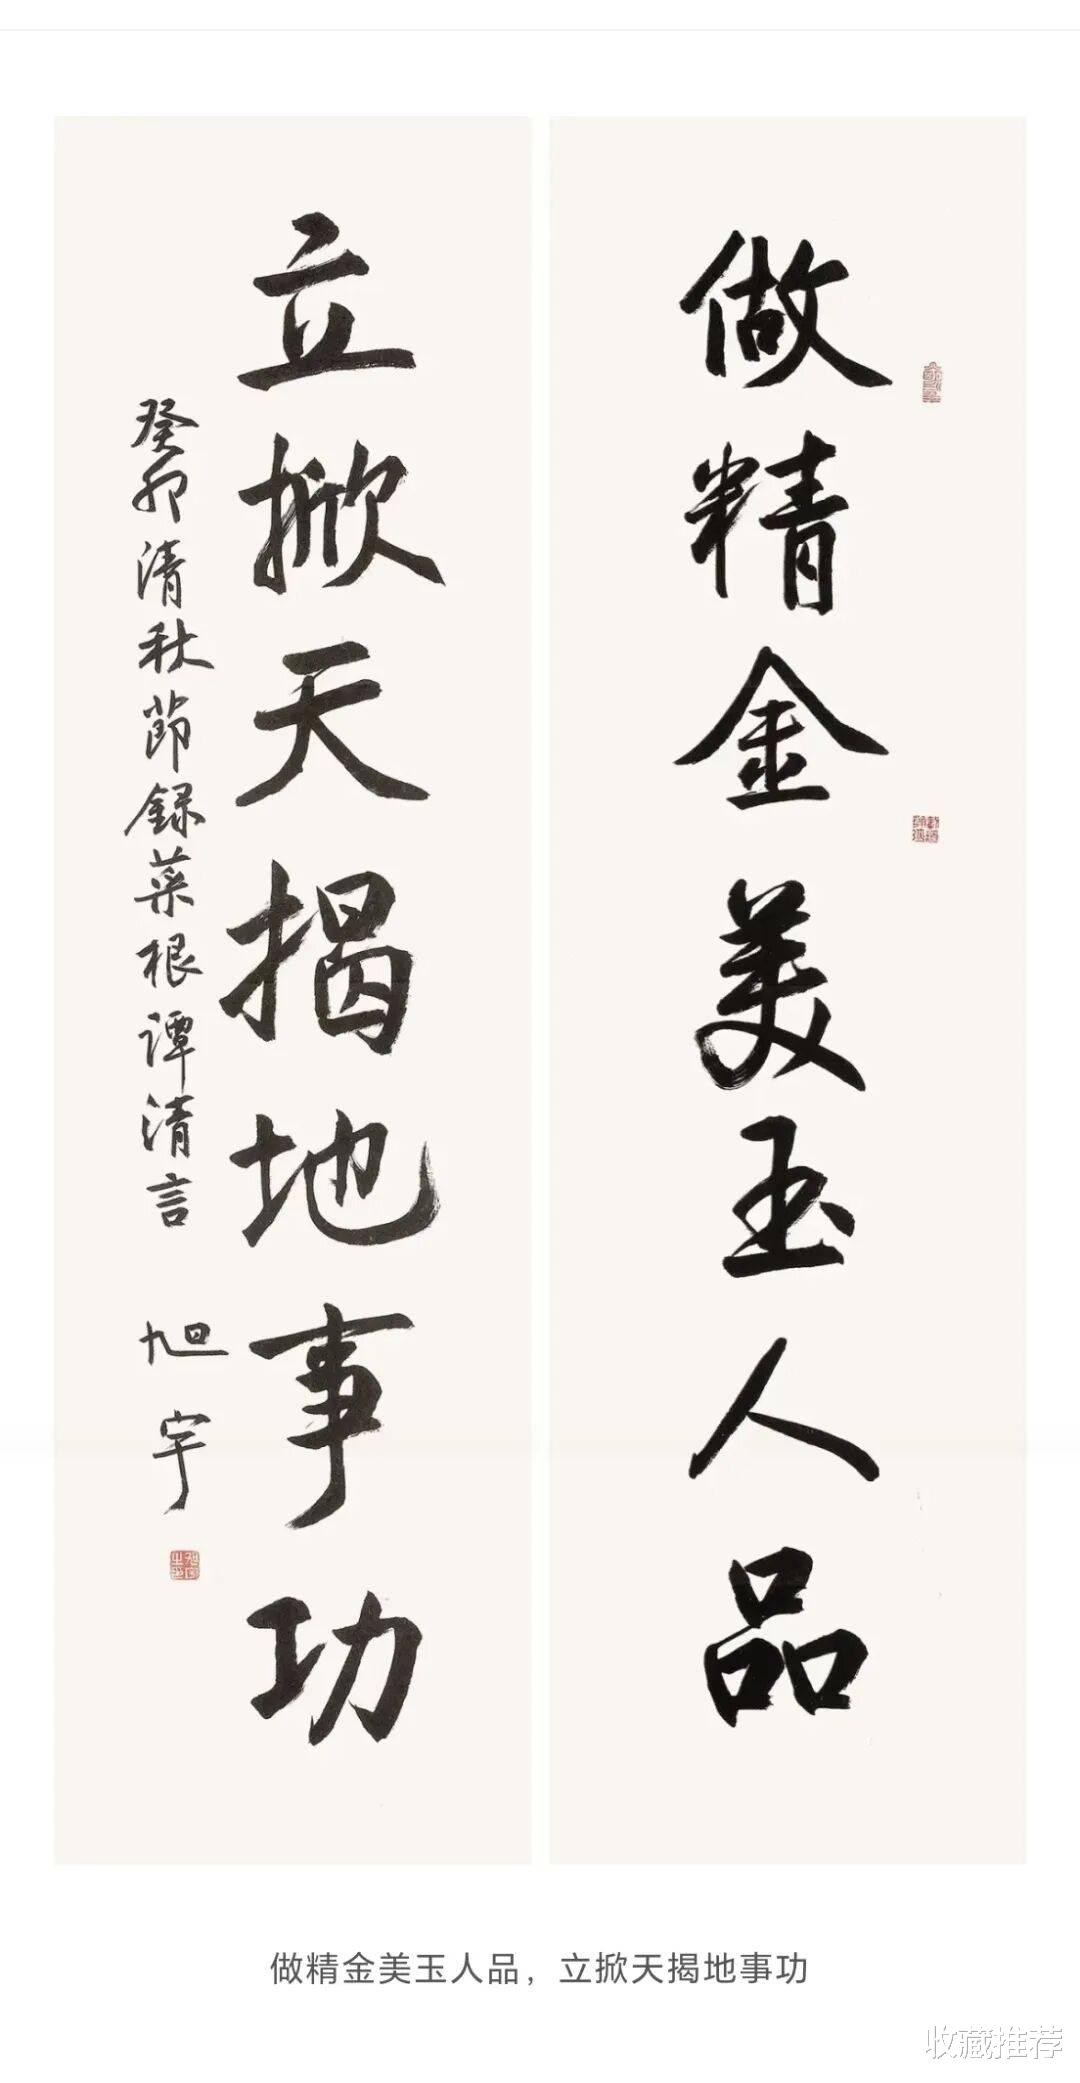 做精金美玉人品
立掀天揭地事功
癸卯清秋節録菜根譚清言
旭宇
做精金美玉人品，立掀天揭地事功
收藏推荐